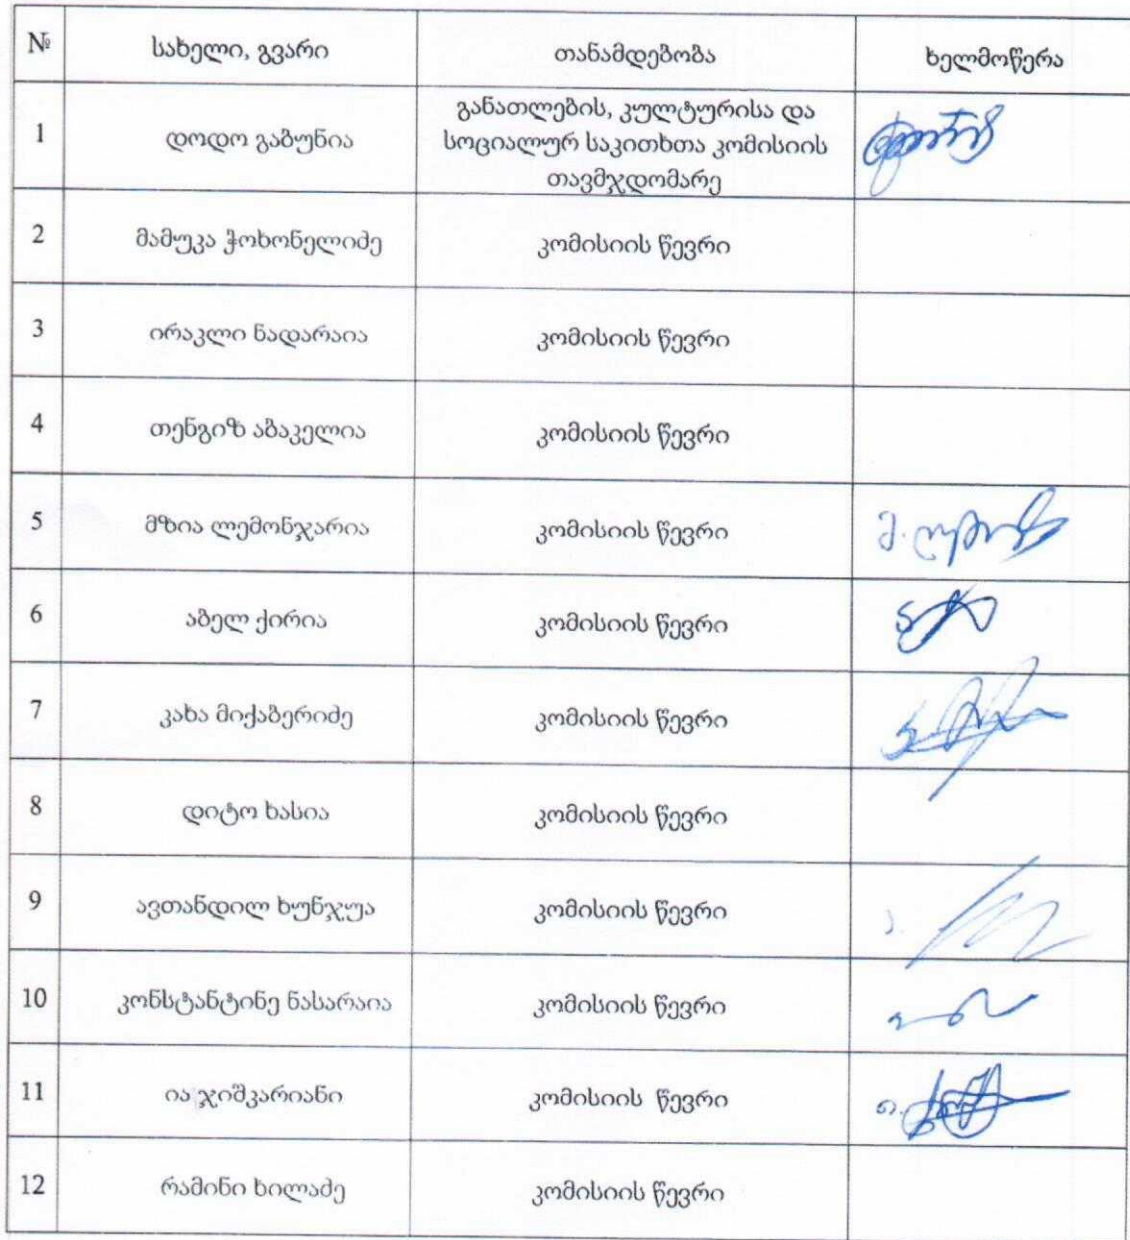 № სახელი, გვარი თანამდებობა ხელმოწერა
1 დოდო გაბუნია განათლების, კულტურისა და
სოციალურ საკითხთა კომისიის
თავმჯდომარე
2 მამუკა ჭოხონელიძე კომისიის წევრი
3 ირაკლი ნადარაია კომისიის წევრი
4 თენგიზ აბაკელია კომისიის წევრი
5 მზია ლემონჯარია კომისიის წევრი
6 აბელ ქირია კომისიის წევრი
7 კახა მიქაბერიძე კომისიის წევრი
8 დიტო ხასია კომისიის წევრი
9 ავთანდილ ხუნჯუა კომისიის წევრი
10 კონსტანტინე ნასარაია კომისიის წევრი
11 ია ჯიშკარიანი კომისიის წევრი
12 რამინი ხილაძე კომისიის წევრი